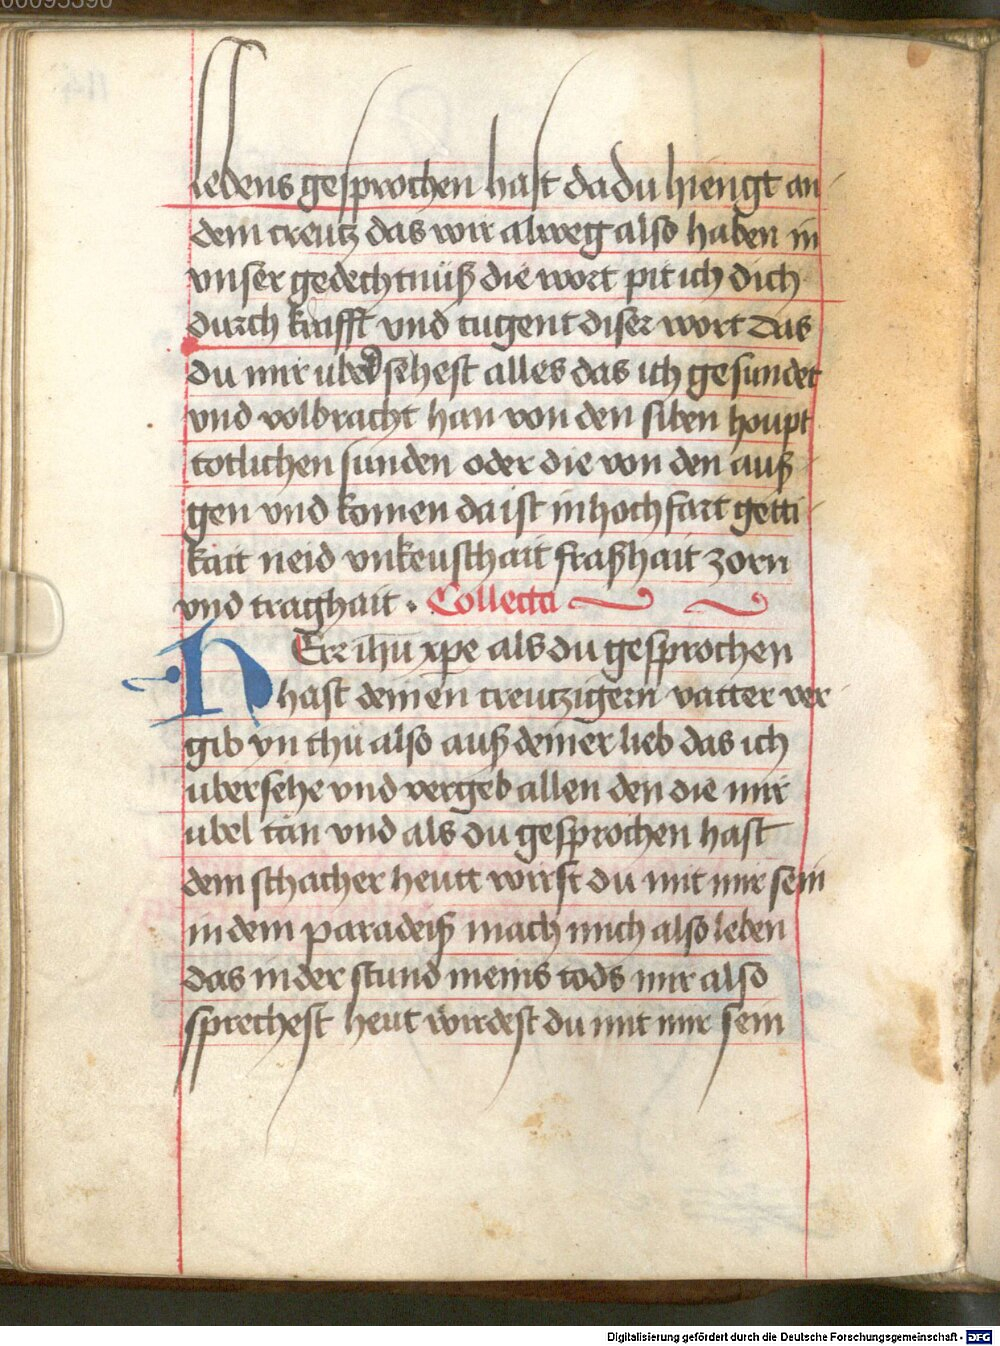 00095390
lebens gesprochen hast da du hiengt an
dem creutz das wir alweg also haben in
vnser gedechtnüß die wort pit ich dich
durch krafft vnd tugent diser wort das
du mir ubersehest alles das ich gesundet
vnd volbracht han von den siben houpt
totlichen sunden oder die von den auß
gen vnd komen da ist in hochfart getti
kait neid vnkeuschait fraßhait zorn
vnd traghait . Collecta
HErr ihu xpe als du gesprochen
hast deinen creutzigern vatter ver
gib vn thu also auß deiner lieb das ich
ubersehe vnd vergeb allen den die mir
ubel tan vnd als du gesprochen hast
dem schacher heutt wirst du mit mir sein
in dem paradeiß mach mich also leben
das in der stund meins tods mir also
sprechest heut wirdest du mit mir sein
Digitalisierung gefördert durch die Deutsche Forschungsgemeinschaft - DFG